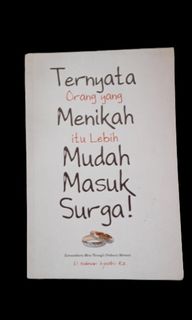 Ternyata
Orang yang
Menikah
itu Lebih
Mudah
Masuk
Surga!